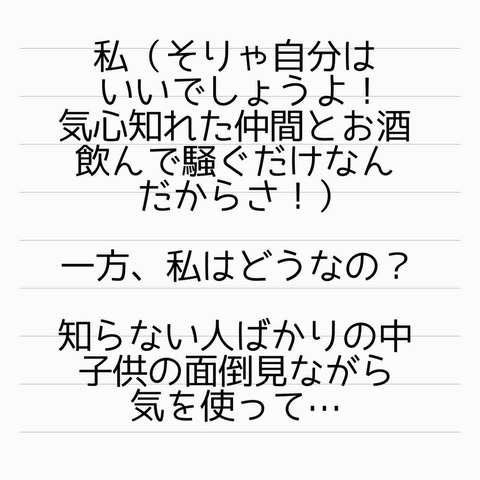 私（そりゃ自分は
いいでしょうよ！
気心知れた仲間とお酒
飲んで騒ぐだけなん
だからさ！）
一方、私はどうなの？
知らない人ばかりの中
子供の面倒見ながら
気を使って…